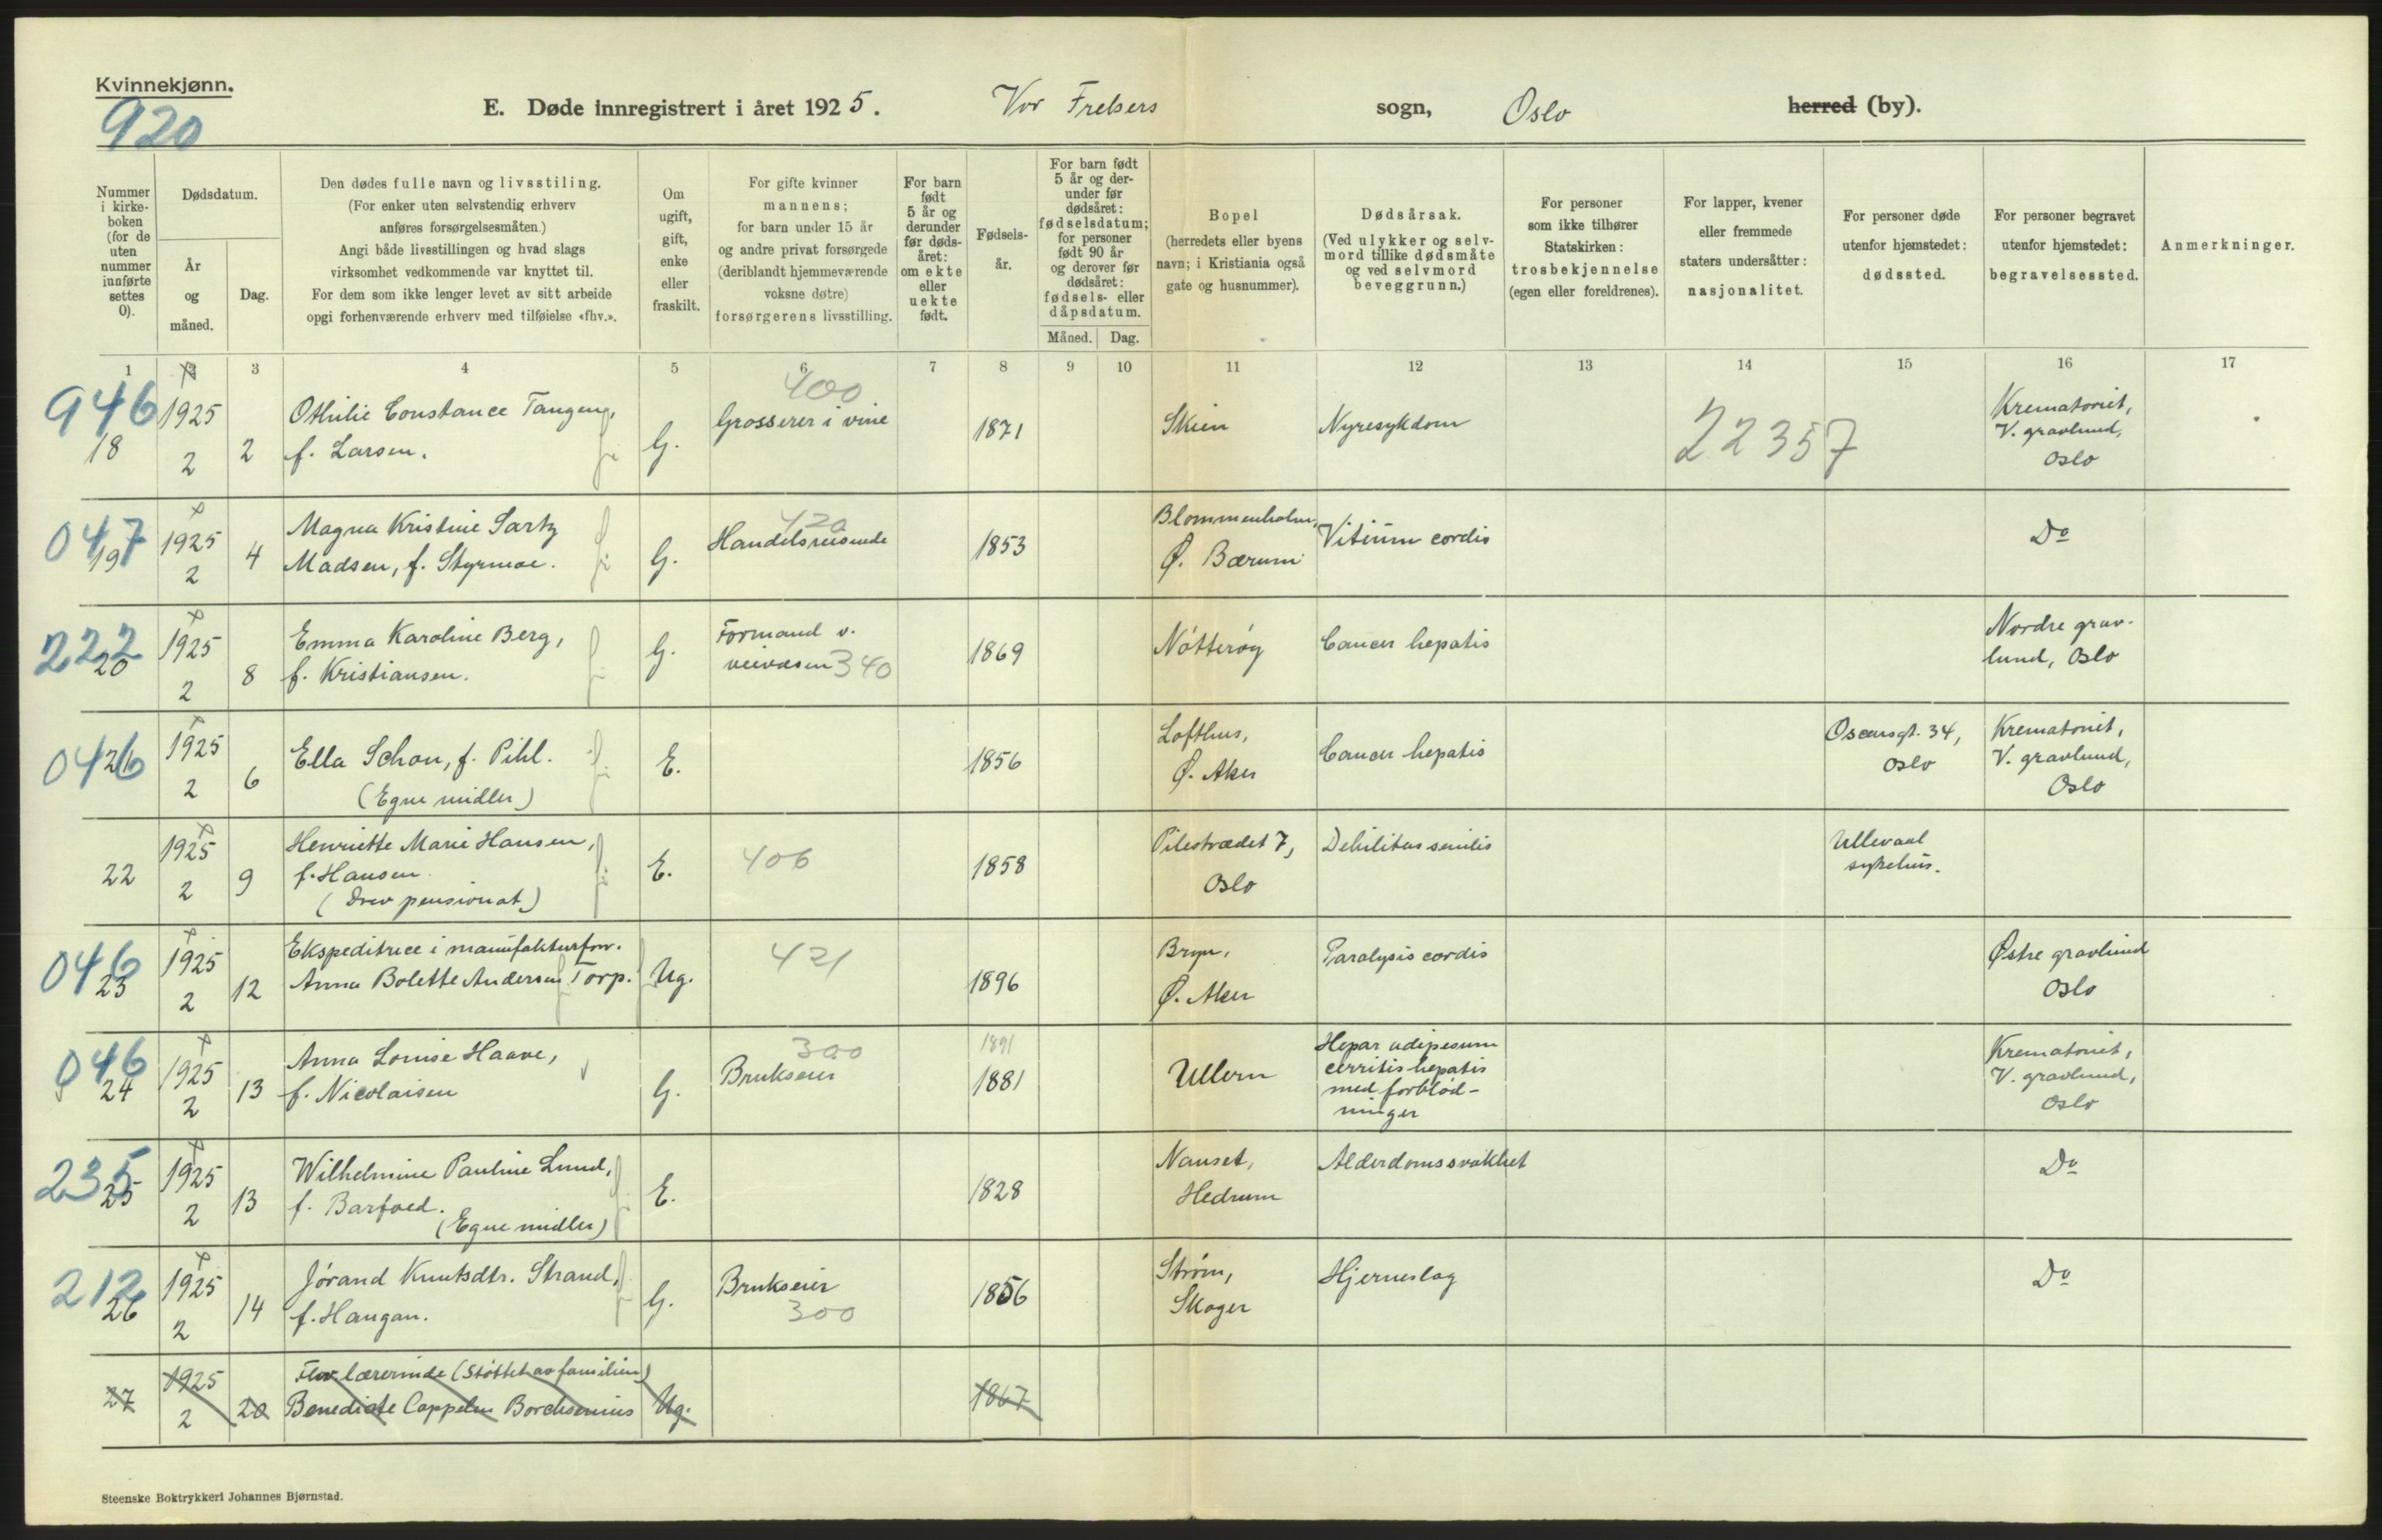 Kvinnekjønn.
920
E. Døde innregistrert i året 1925. Vor Frelsers sogn, Oslo herred (by).
Nummer i kirkeboken (for de uten nummer innførte settes 0).
Dødsdatum.
År og måned.
Dag.
Den dødes fulle navn og livsstiling.
(For enker uten selvstendig erhverv
anføres forsørgelsesmåten.)
Angi både livsstillingen og hvad slags
virksomhet vedkommende var knyttet til.
For dem som ikke lenger levet av sitt arbeide
opgi forhenværende erhverv med tilføielse «fhv.».
Om ugift, gift, enke eller fraskilt.
For gifte kvinner
mannens;
for barn under 15 år
og andre privat forsørgede
(deriblandt hjemmeværende
voksne døtre)
forsørgerens livsstilling.
For barn født 5 år og derunder før dødsåret: om ekte eller uekte født.
Fødselsår.
For barn født 5 år og derunder før dødsåret: fødselsdatum; for personer født 90 år og derover før dødsåret: fødsels- eller dåpsdatum.
Måned. Dag.
Bopel
(herredets eller byens
navn; i Kristiania også
gate og husnummer).
Dødsårsak.
(Ved ulykker og selvmord tillike dødsmåte
og ved selvmord
beveggrunn.)
For personer
som ikke tilhører
Statskirken:
trosbekjennelse
(egen eller foreldrenes).
For lapper, kvener
eller fremmede
staters undersåtter:
nasjonalitet.
For personer døde
utenfor hjemstedet:
dødssted.
For personer begravet
utenfor hjemstedet:
begravelsessted.
Anmerkninger.
1 2 3 4 5 6 7 8 9 10 11 12 13 14 15 16 17
946 18 1925 2 2 Othilie Constance Tangeng, f. Larsen. G. 400 Grosserer i vine 1871 Skien Nyresykdom 22357 Krematoriet, V. gravlund, Oslo
047 19 1925 2 4 Magna Kristine Sartz Madsen, f. Styrmoe. G. 420 Handelsreisende 1853 Blommenholm, Ø. Bærum Vitium cordis Do
222 20 1925 2 8 Emma Karoline Berg, f. Kristiansen. G. Formand v. veivæsen 340 1869 Nøtterøy Cancer hepatis Nordre gravlund, Oslo
046 21 1925 2 6 Ella Schou, f. Pihl. (Egne midler) E. 1856 Lofthus, Ø. Aker Cancer hepatis Oscarsgt. 34, Oslo Krematoriet, V. gravlund, Oslo
22 1925 2 9 Henriette Marie Hansen, f. Hansen. (Drev pensionat) E. 406 1858 Pilestrædet 7, Oslo Debilitas senilis Ullevaal sykehus.
046 23 1925 2 12 Ekspeditrice i manufakturforr. Anna Bolette Andersen Torp. Ug. 421 1896 Bryn, Ø. Aker Paralysis cordis Østre gravlund Oslo
046 24 1925 2 13 Anna Louise Haave, f. Nicolaisen G. 300 Brukseier 1891 1881 Ullern Hepar adiposum cirritis hepatis med forblødninger Krematoriet, V. gravlund, Oslo
235 25 1925 2 13 Wilhelmine Pauline Lund, f. Barfoed. (Egne midler) E. 1828 Nanset, Hedrum Alderdomssvakhet Do
212 26 1925 2 14 Jørand Knutsdtr. Strand, f. Haugan. G. Brukseier 300 1856 Strøm, Skoger Hjerneslag Do
27 1925 2 20 Fhv lærerinde (Støttet av familien) Benedicte Cappelen Borchsenius Ug. 1867
Steenske Boktrykkeri Johannes Bjørnstad.